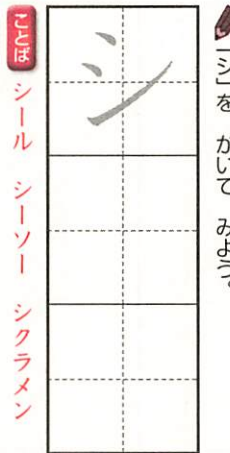 「シ」を かいて みよう。
シ
ことば シール シーソー シクラメン